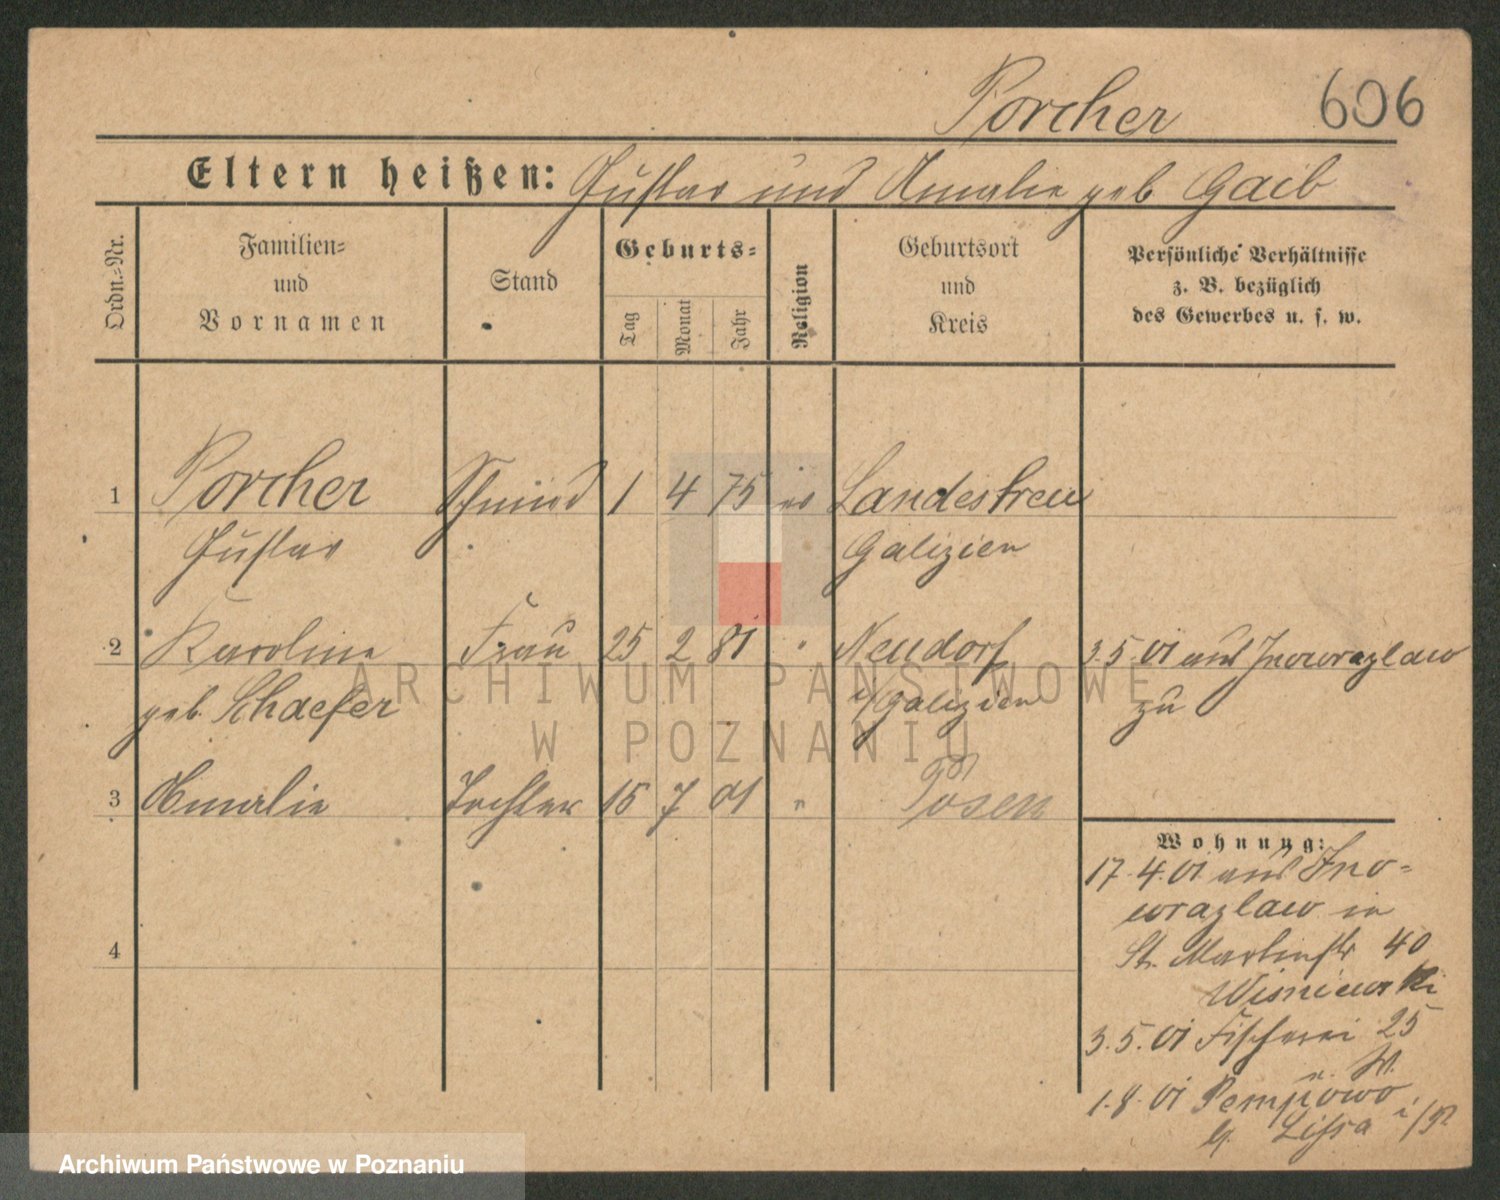 Porcher 606
Eltern heißen: Gustav und Amalie geb Gaib
Ordn.-Nr.
Familien-
und
Vornamen
Stand
Geburts-
Tag
Monat
Jahr
Religion
Geburtsort
und
Kreis
Persönliche Verhältnisse
z. B. bezüglich
des Gewerbes u. s. w.
1 Porcher Schmied 1 4 75 ev Landestreu
Gustav Galizien
2 Karoline Frau 25 2 81 " Neudorf 3.5.01 aus Inowrazlaw
geb. Schaefer i/Galizien zu
3 Amalie Tochter 15 7 01 " Posen
Wohnung:
17.4.01 aus Ino-
wrazlaw in
St. Martinstr 40
4
Wisniewski
3.5.01 Fischerei 25
1.8.01 n. Pempowo
Lissa i/P
ARCHIWUM PAŃSTWOWE
W POZNANIU
Archiwum Państwowe w Poznaniu